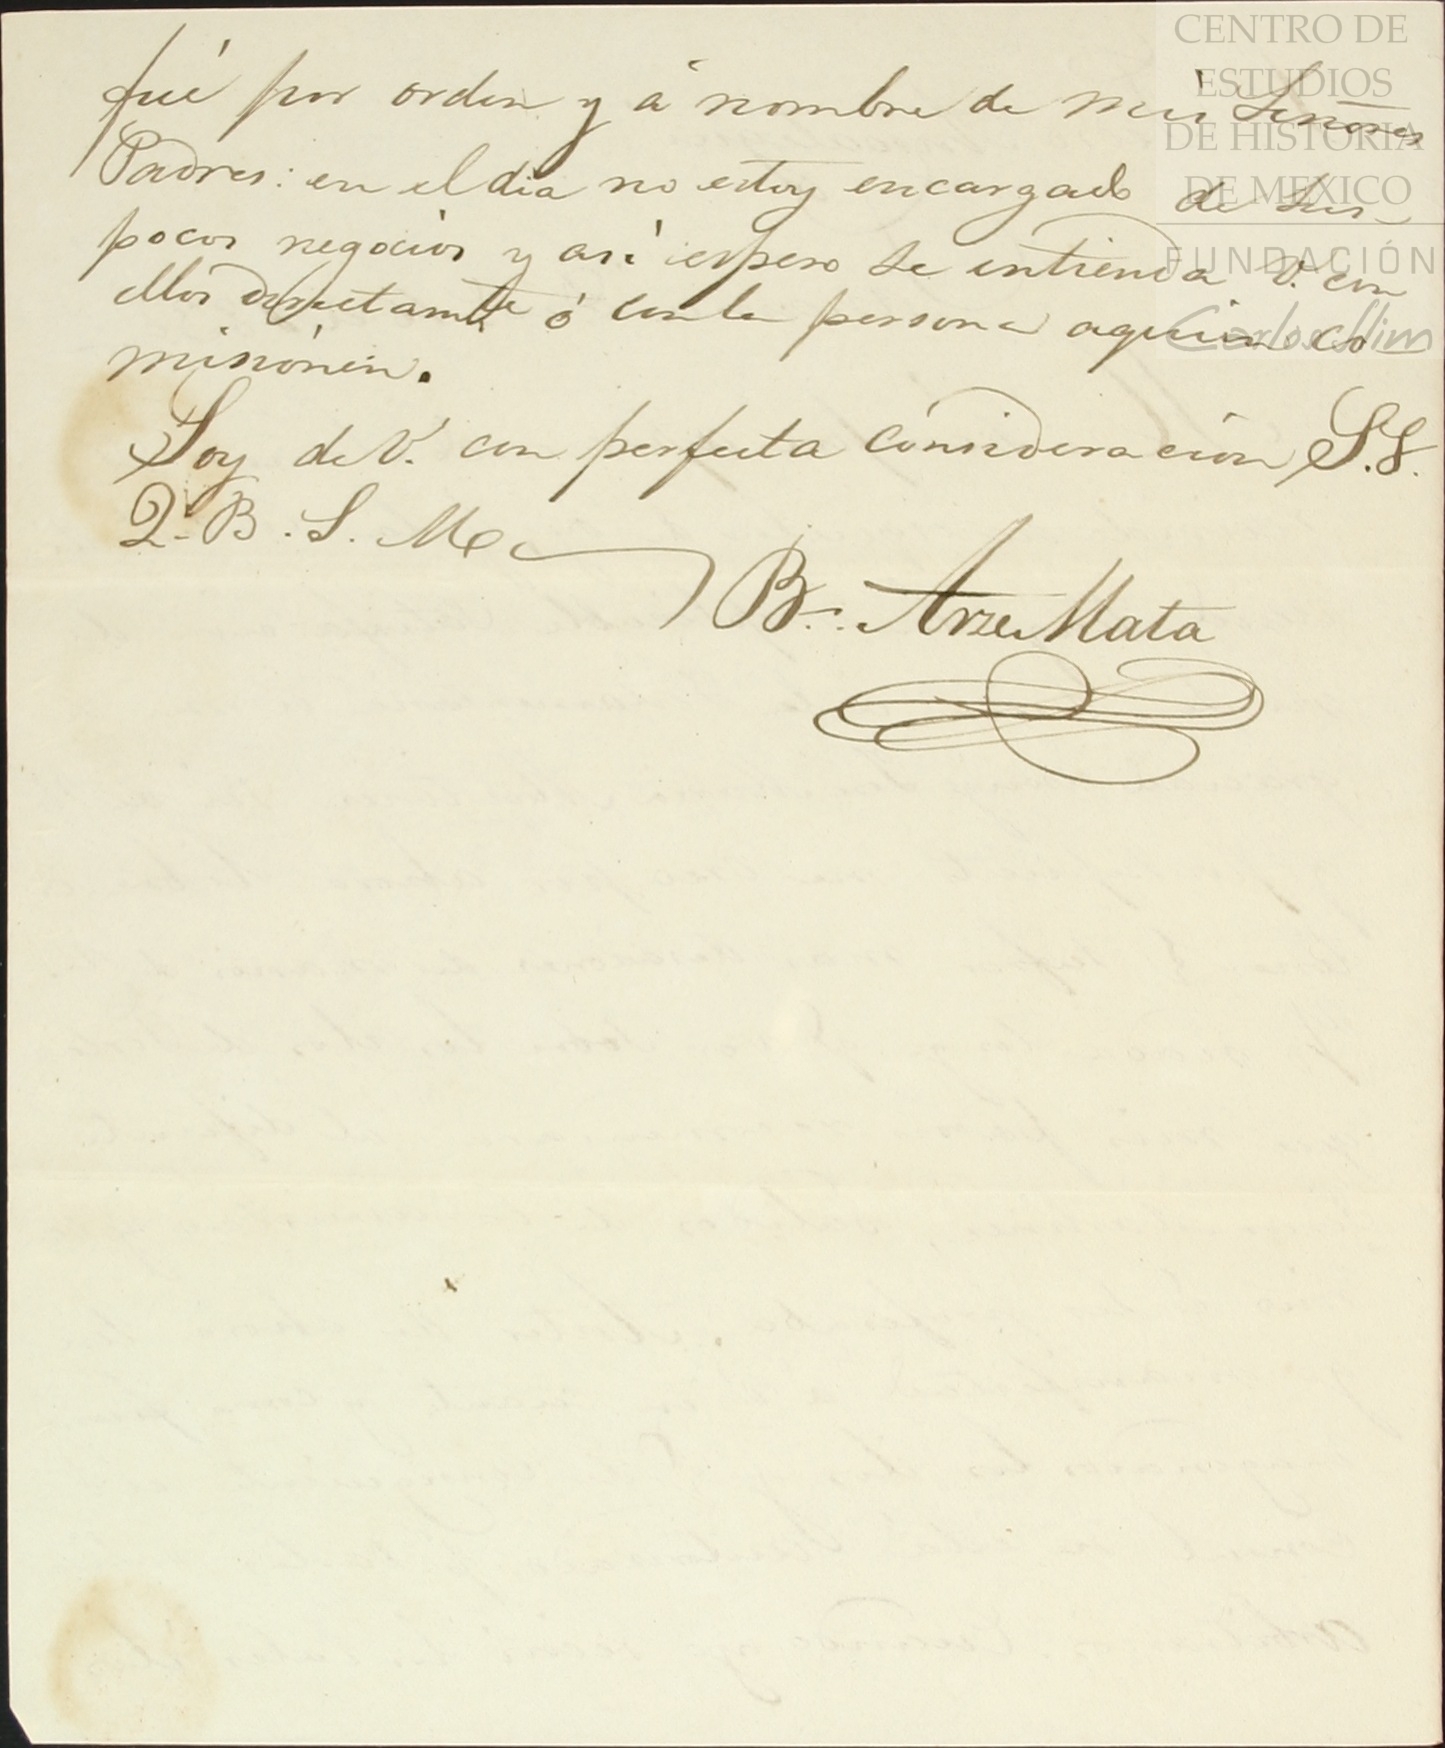 fué por orden y á nombre de mis Señores
Padres: en el dia no estoy encargado de sus
pocos negocios y asi espero se entienda V. con
ellos directamte ó con la persona aquien co
misiónen.
Soy de V. con perfecta cónsideración S.S.
Q. B. S. M.
B. Arze Mata
CENTRO DE
ESTUDIOS
DE HISTORIA
DE MEXICO
FUNDACIÓN
Carlos Slim